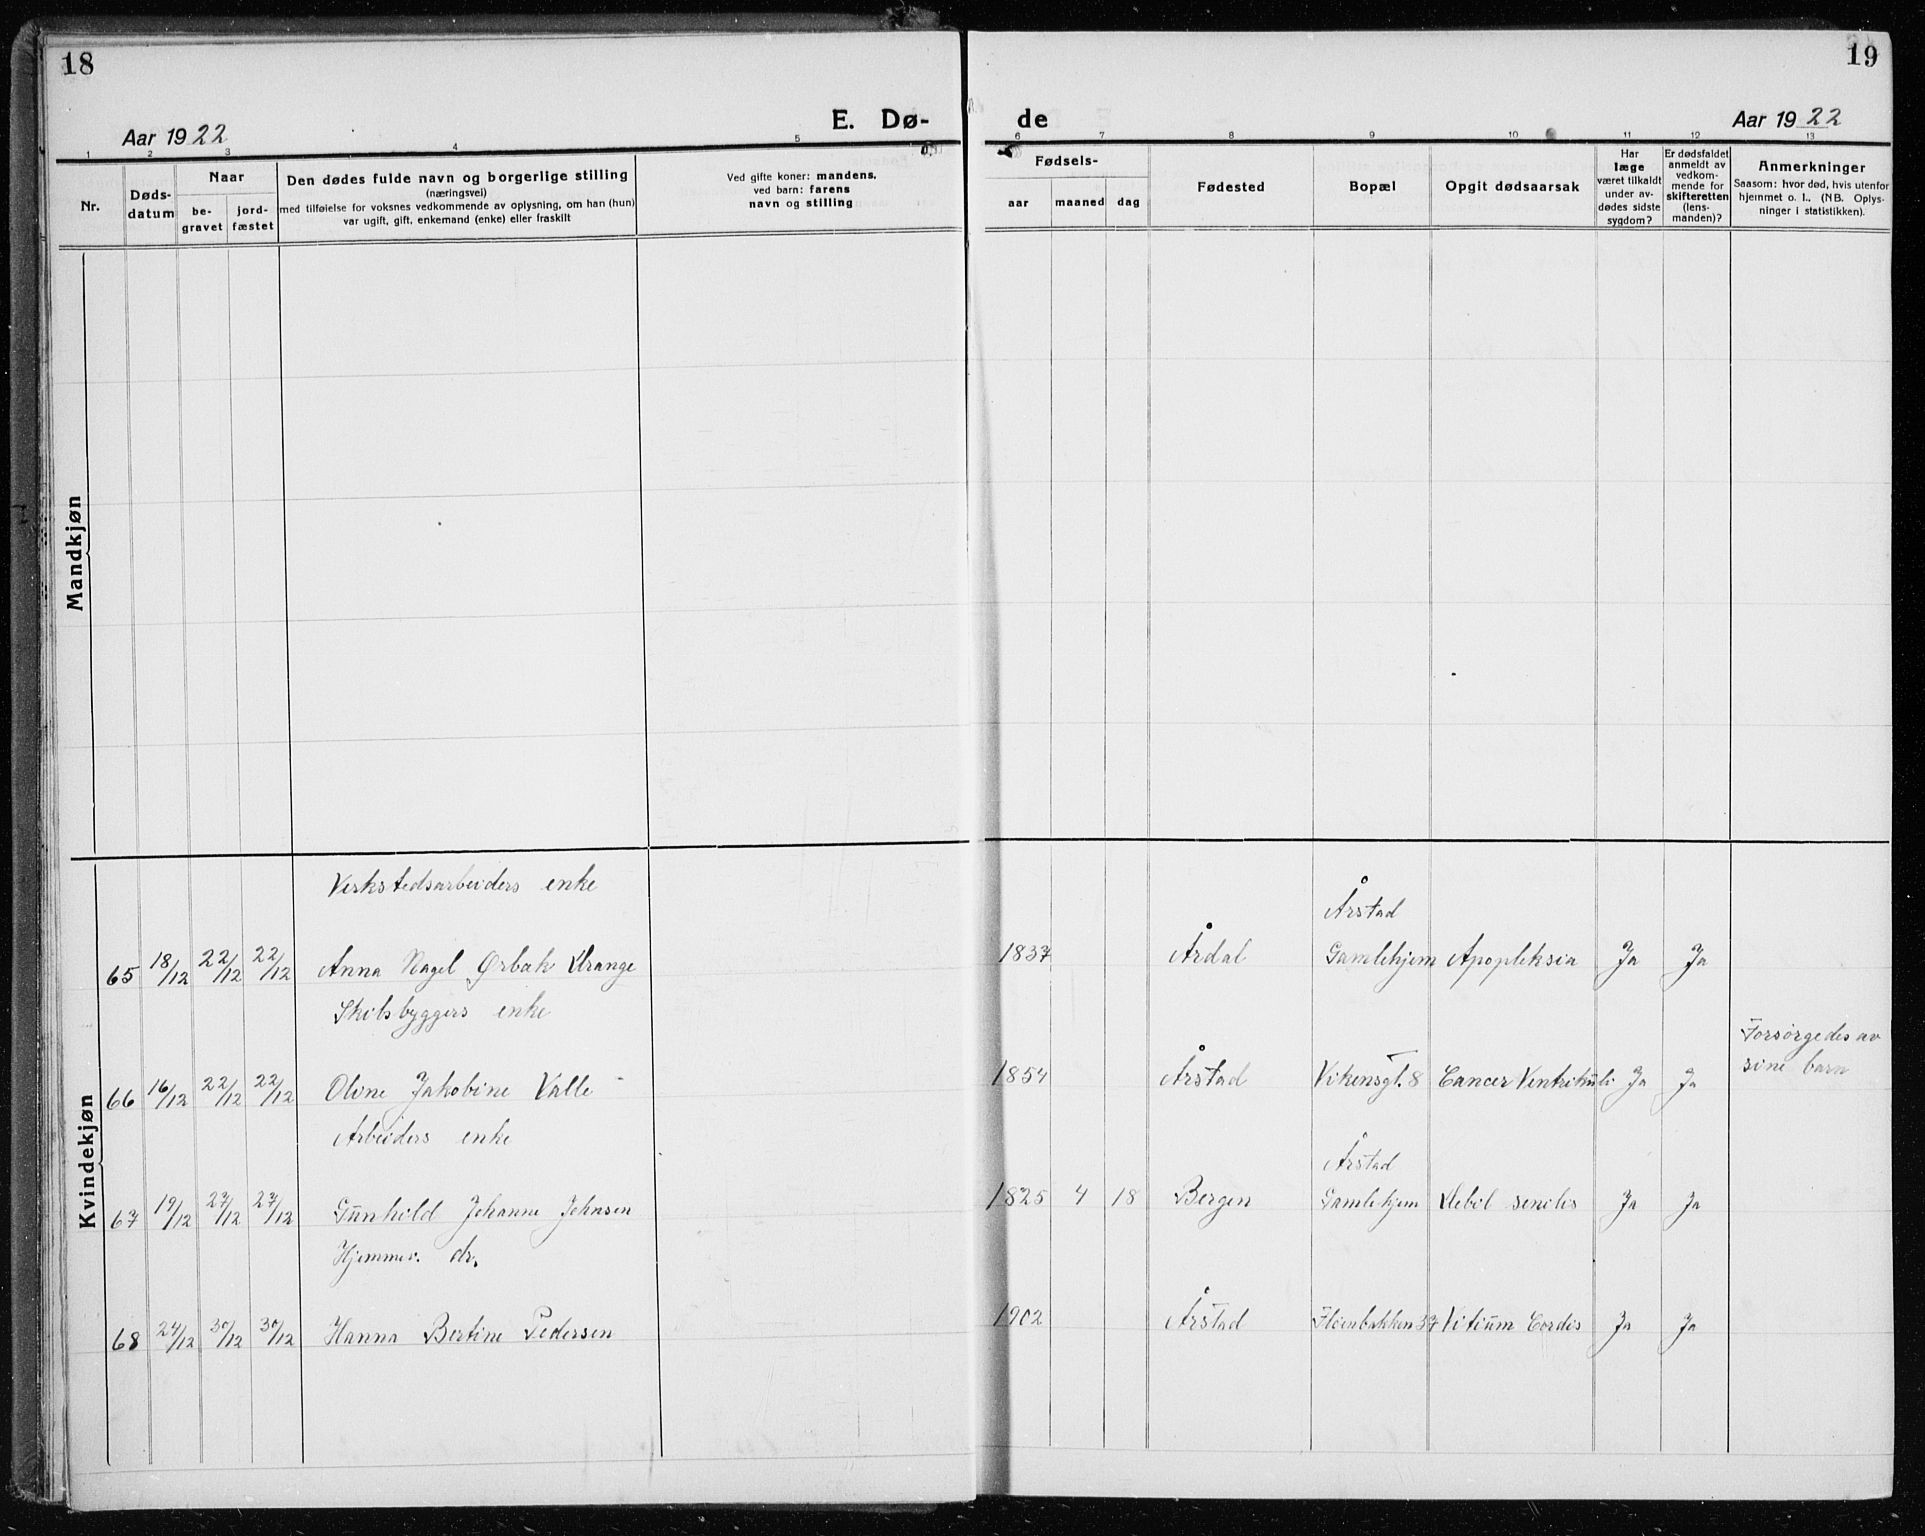 18
19
E. Dø-
de
Aar 1922
Aar 1922
1 2 3 4 5 6 7 8 9 10 11 12 13
Nr.
Døds-
datum
Naar
be-
gravet
jord-
fæstet
Den dødes fulde navn og borgerlige stilling
(næringsvei)
med tilføielse for voksnes vedkommende av oplysning, om han (hun)
var ugift, gift, enkemand (enke) eller fraskilt
Ved gifte koner: mandens,
ved barn: farens
navn og stilling
Fødsels-
aar maaned dag
Fødested
Bopæl
Opgit dødsaarsak
Har
læge
været tilkaldt
under av-
dødes sidste
sygdom?
Er dødsfaldet
anmeldt av
vedkom-
mende for
skifteretten
(lens-
manden)?
Anmerkninger
Saasom: hvor død, hvis utenfor
hjemmet o. l., (NB. Oplys-
ninger i statistikken).
Mandkjøn
Kvindekjøn
Verkstedsarbeiders enke
Årstad
65 18/12 22/12 22/12 Anna Nagel Ørbæk Drange 1837 Årdal Gamlehjem Apopleksia Ja Ja
Skibsbyggers enke
Forsørgedes av
sine barn
66 16/12 22/12 22/12 Oline Jakobine Valle 1854 Årstad Vikensgt. 8 Cancer Ventrikuli Ja Ja
Arbeiders enke
Årstad
67 19/12 27/12 27/12 Gunhild Johanne Johnsen 1825 4 18 Bergen Gamlehjem Debil senilis Ja Ja
Hjemmev. dr.
68 24/12 30/12 30/12 Hanna Bertine Pedersen 1902 Årstad Fløenbakken 37 Vitium Cordis Ja Ja